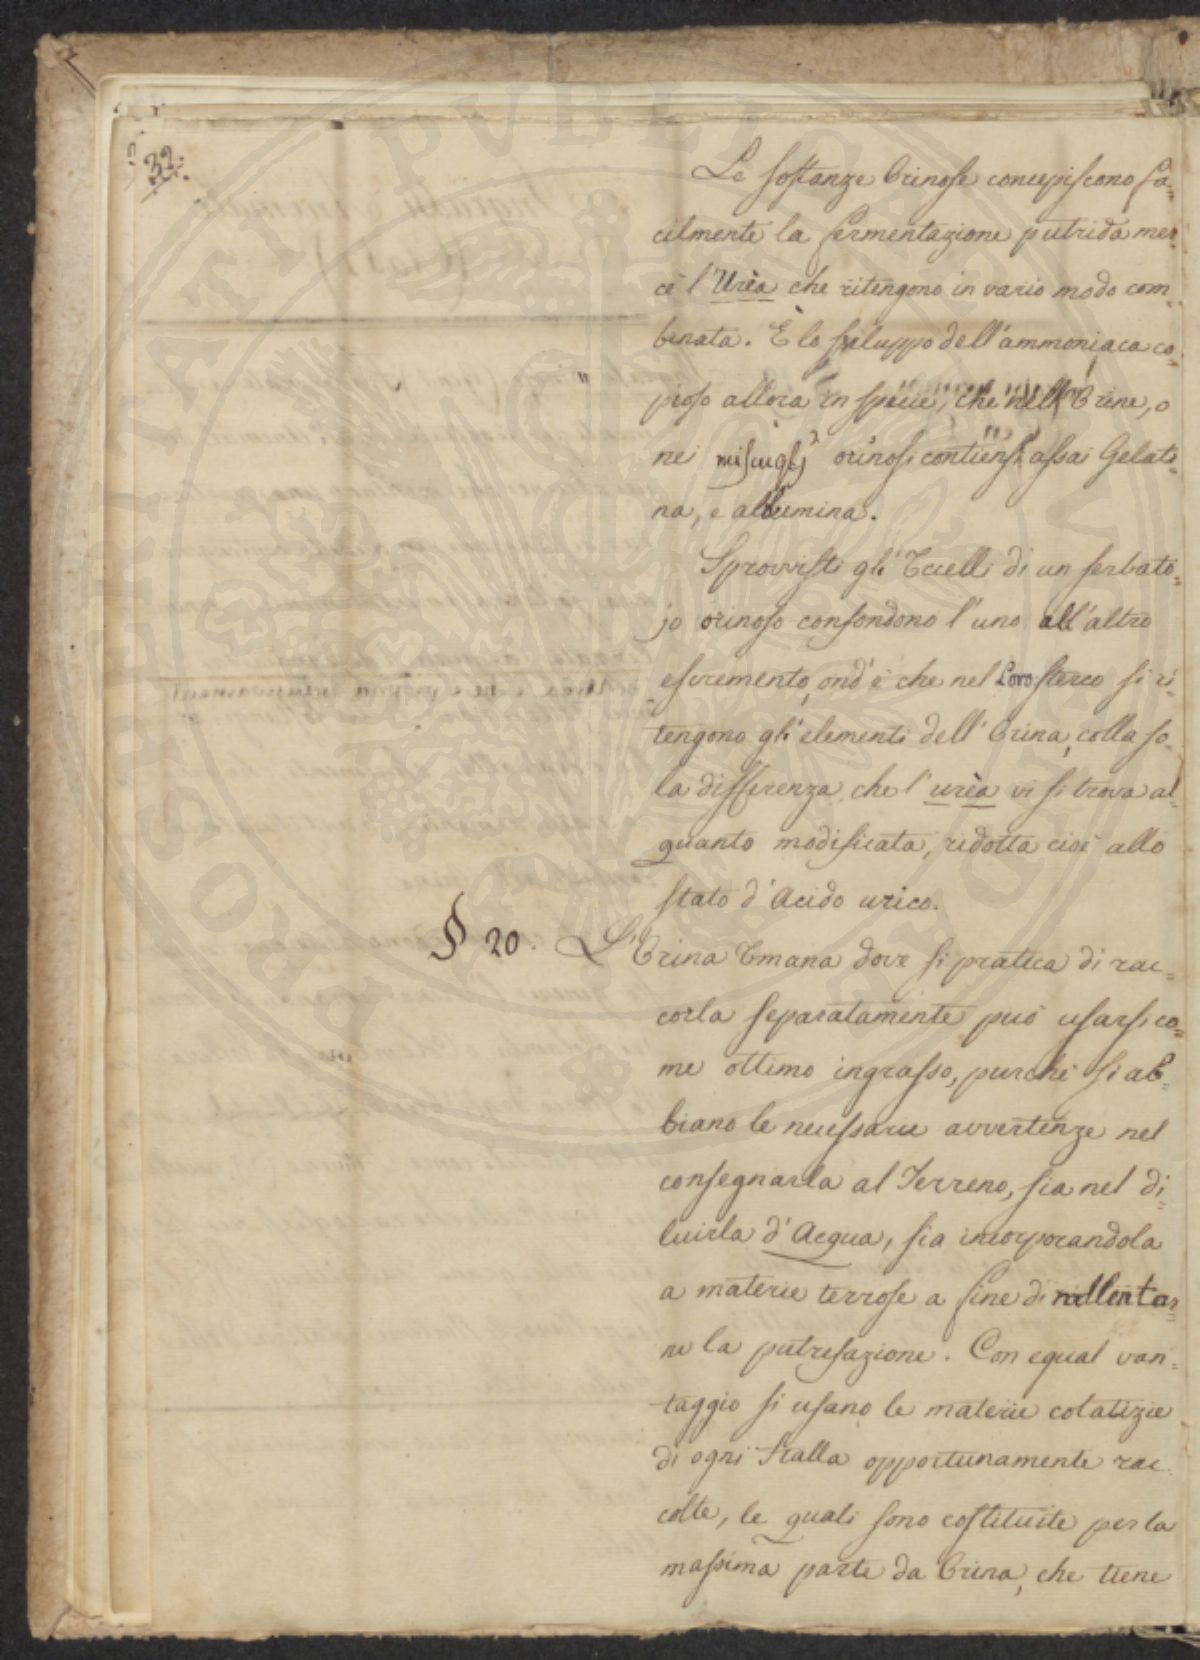 32.
Le sostanze Orinose concepiscono fa=
cilmente la fermentazione putrida mer
cè l'Urèa che ritengono in vario modo com=
binata. È lo sviluppo dell'ammoniaca co
pioso allora in specie, che nell'Orine, o
nei miscugli orinosi contiensi assai Gelati=
na, e albumina.
Sprovvisti gli Uccelli di un serbato=
jo orinoso confondono l'uno all'altro
escremento, ond'è che nel loro sterco si ri=
tengono gli elementi dell'Orina, colla so=
la differenza che l'urèa vi si trova al=
quanto modificata, ridotta cioè allo
stato d'Acido urico.
§ 20. L'Orina Umana dove si pratica di rac=
corla separatamente può usarsi co=
me ottimo ingrasso, purchè si ab=
biano le necessarie avvertenze nel
consegnarla al Terreno, sia nel di=
luirla d'Acqua, sia incorporandola
a materie terrose a fine di rallentar=
ne la putrefazione. Con egual van=
taggio si usano le materie colatizie
di ogni Stalla opportunamente rac
colte, le quali sono costituite per la
massima parte da Orina, che tiene